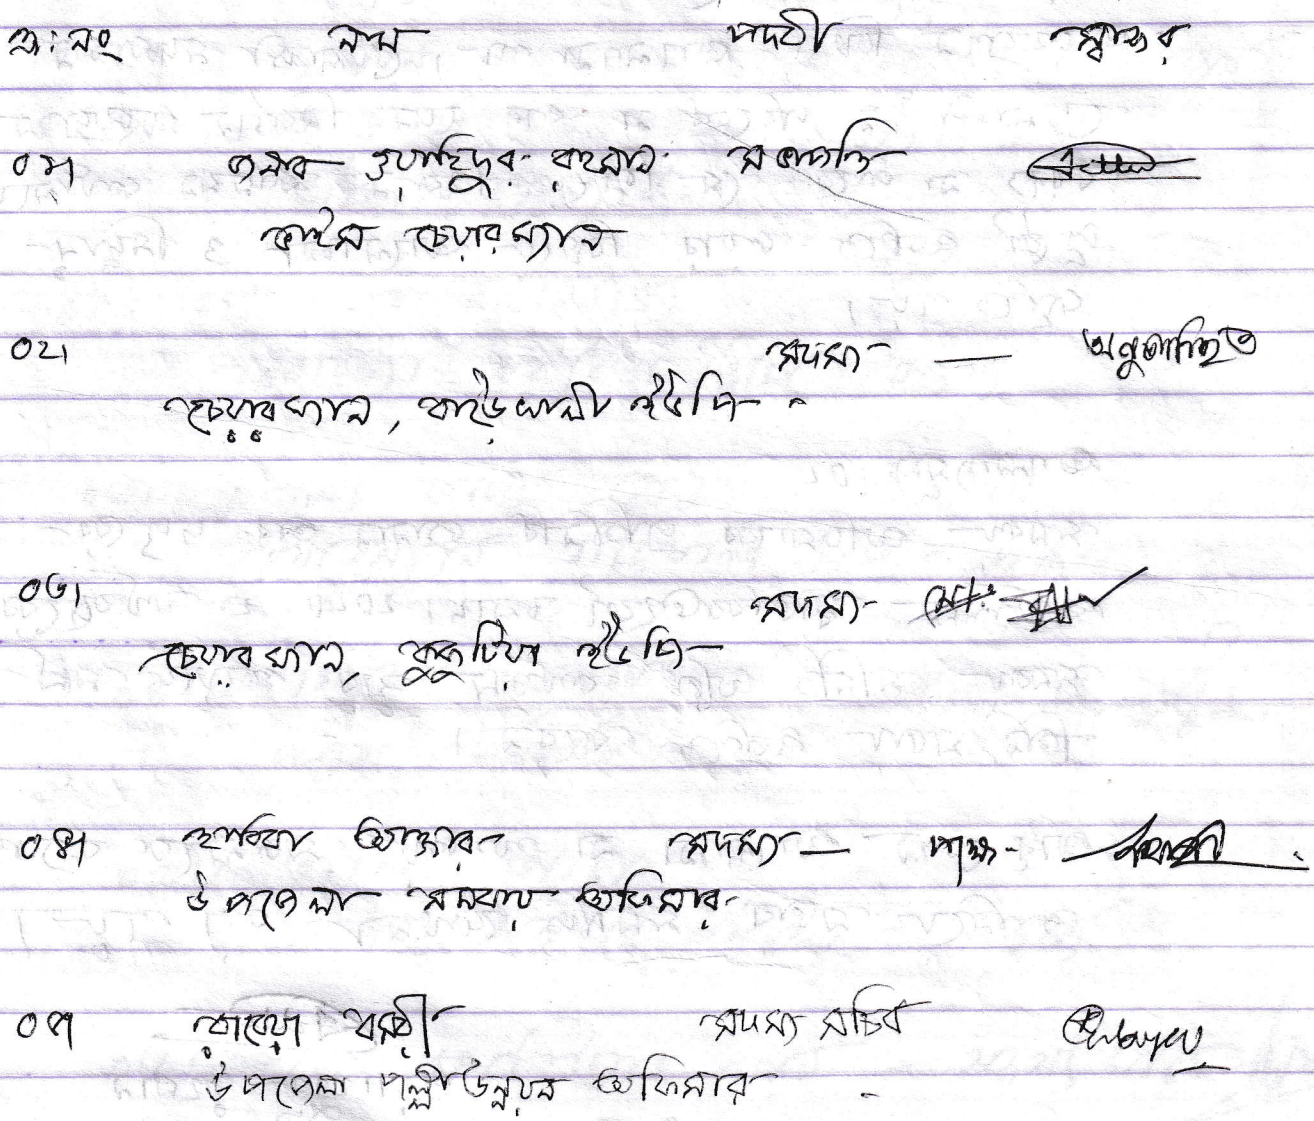 ক্র: নং নাম পদবী স্বাক্ষর
০১। জনাব ওয়াহিদুর রহমান সভাপতি
ভাইস চেয়ারম্যান
০২। সদস্য — অনুপস্থিত
চেয়ারম্যান, বাড়ৈখালী ইউপি
০৩। সদস্য মো:
চেয়ারম্যান, কুকুটিয়া ইউপি
০৪। হাবিবা আক্তার সদস্য — পক্ষে -
উপজেলা সমবায় অফিসার
০৫। রাবেয়া বসরী সদস্য সচিব
উপজেলা পল্লী উন্নয়ন অফিসার